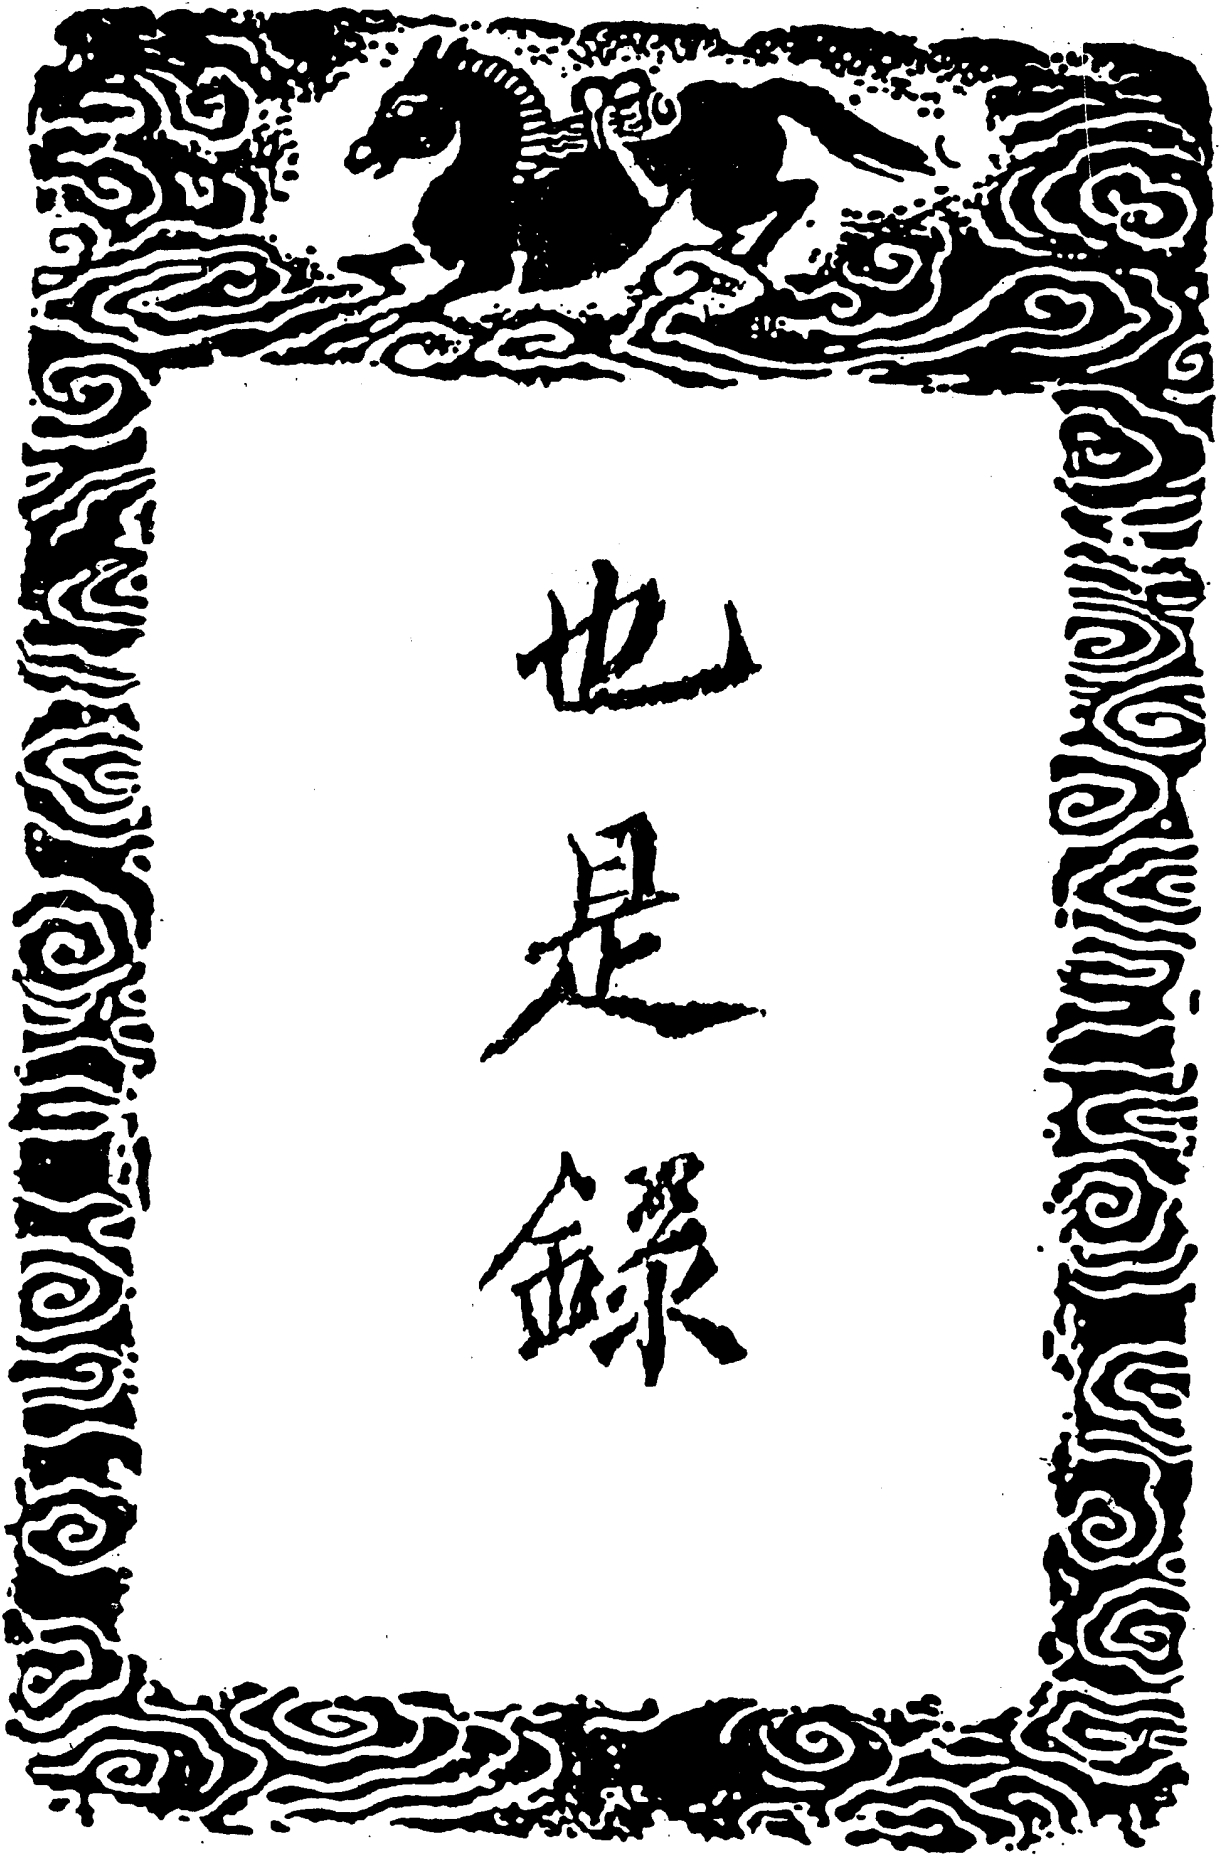 也是錄